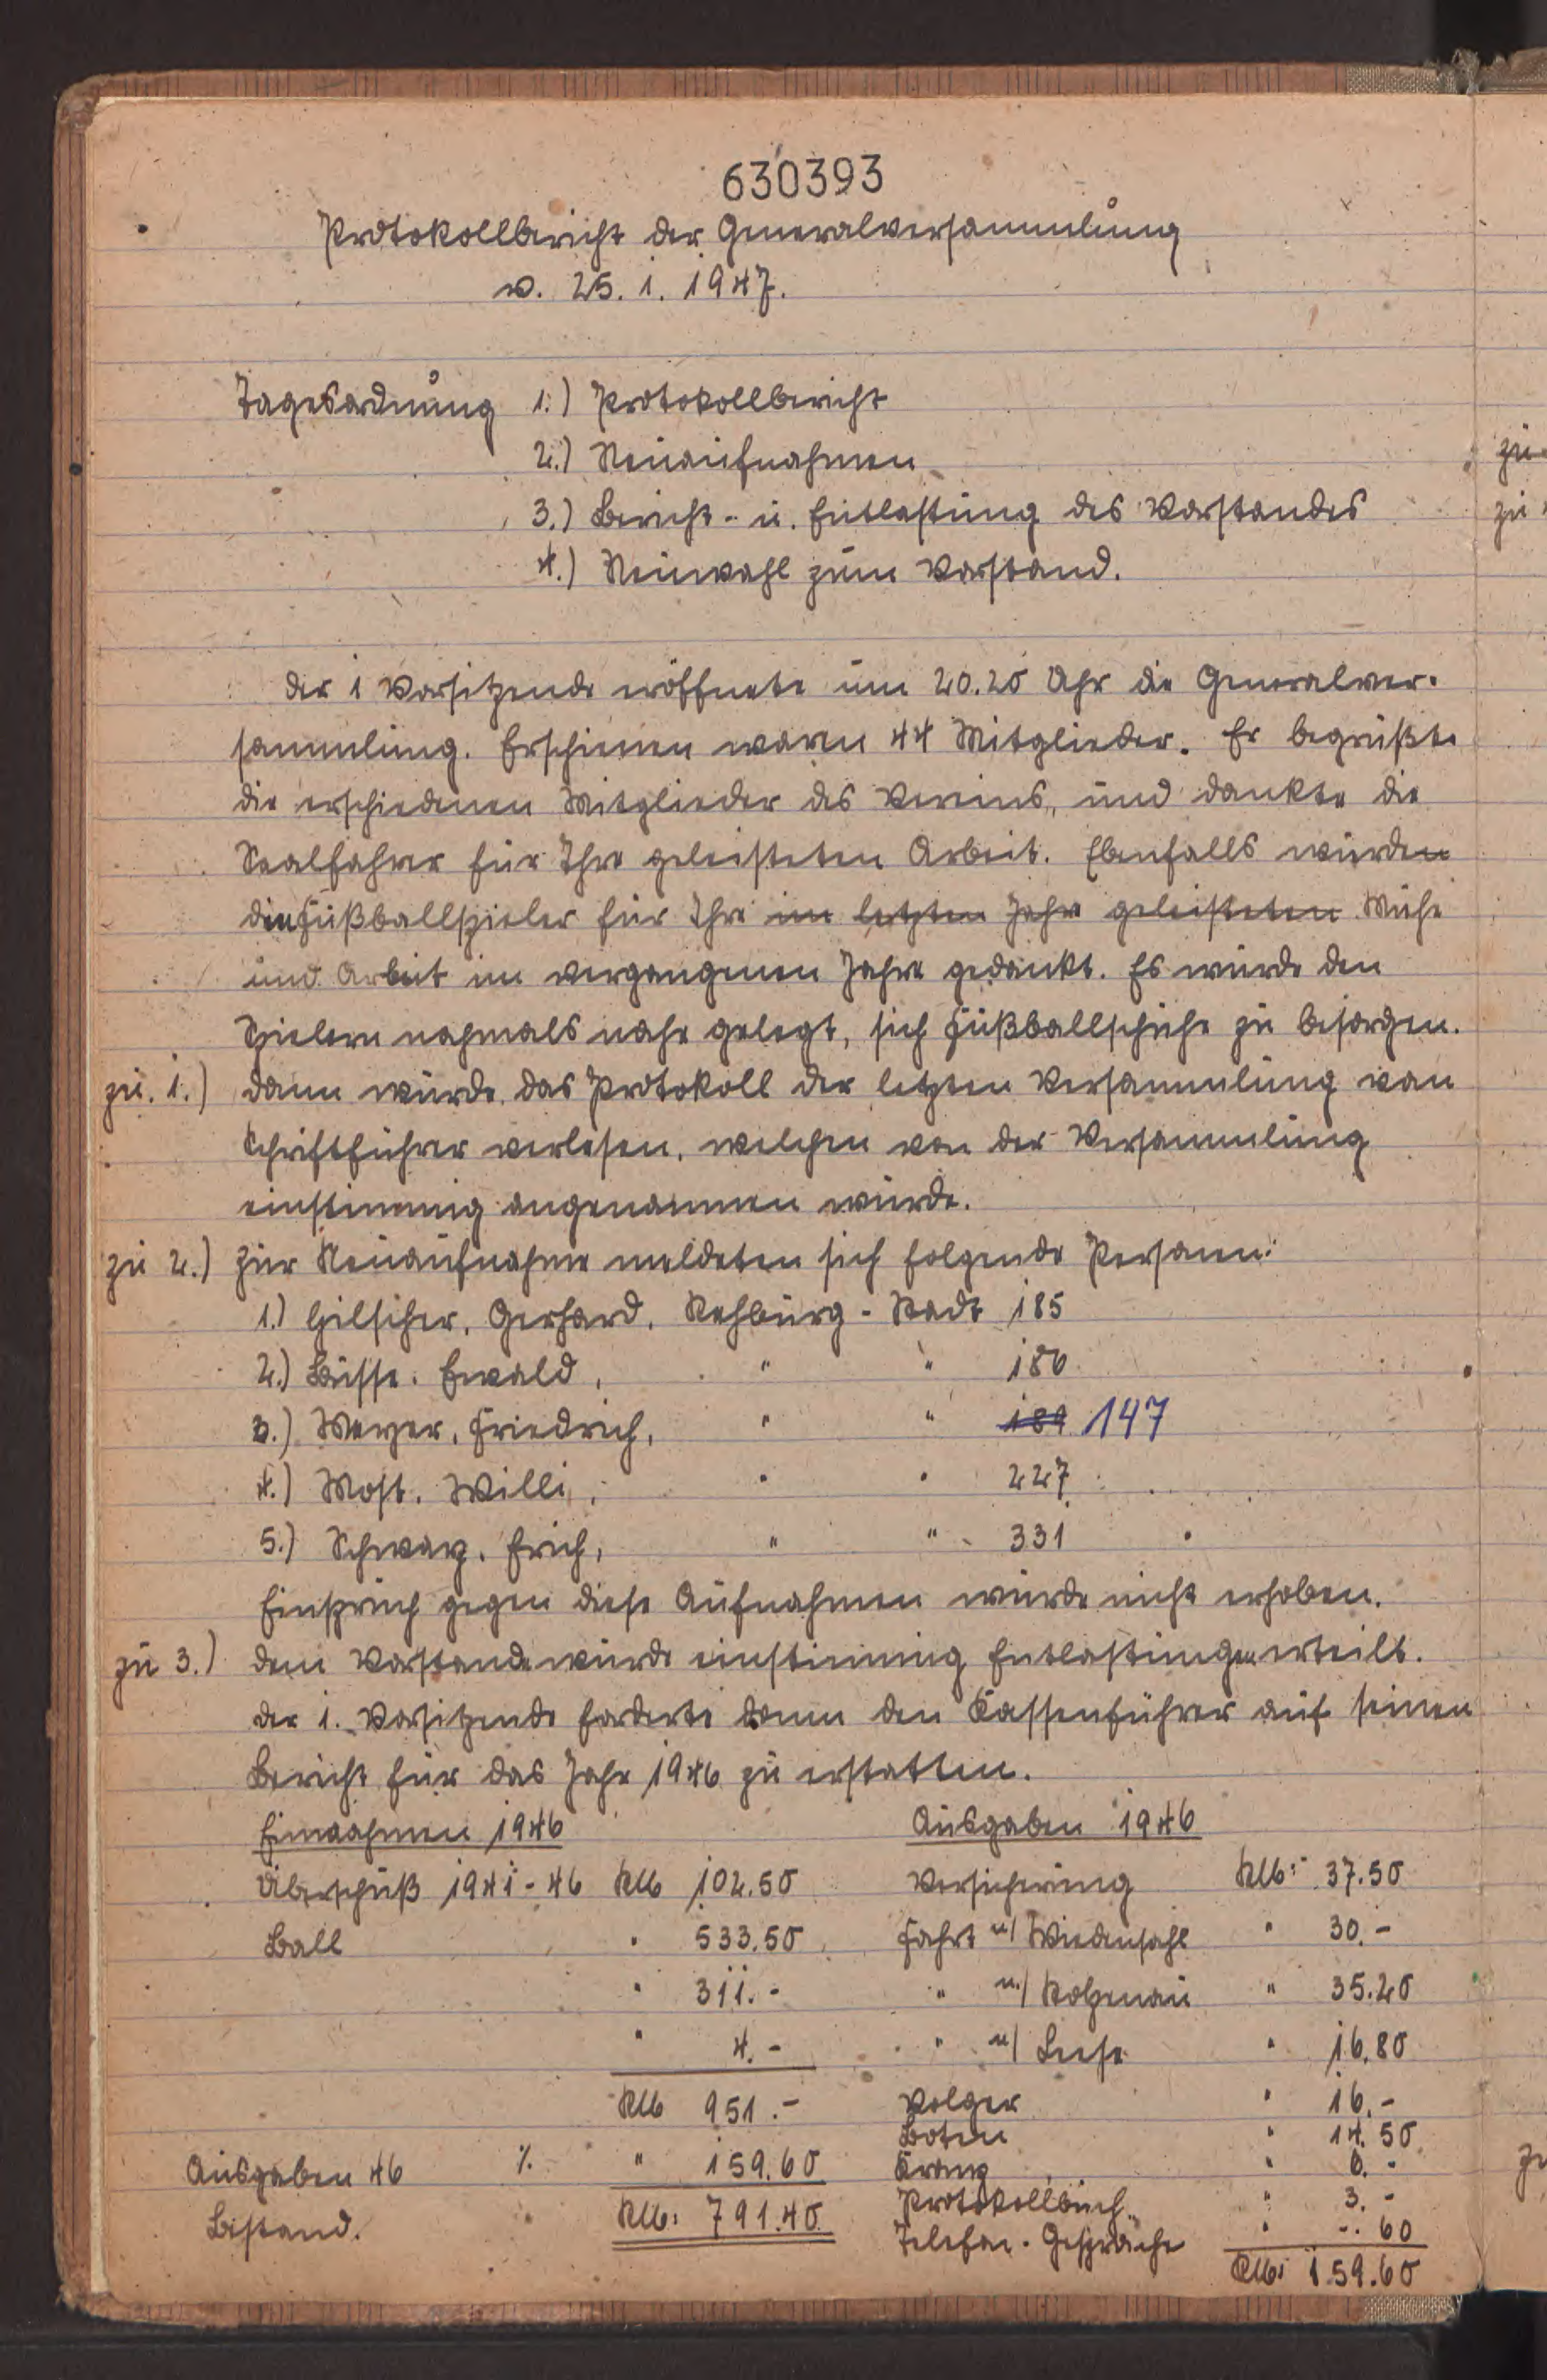 630393
Protokollbericht der Generalversammlung
v. 25. 1. 1947.
Tagesordnung 1.) Protokollbericht
2.) Neuaufnahmen
3.) Bericht- u. Entlastung des Vorstandes
4.) Neuwahl zum Vorstand.
Der 1 Vorsitzende eröffnete um 20.20 Uhr die Generalver-
sammlung. Erschienen waren 44 Mitglieder. Er begrüßte
die erschiedenen Mitglieder des Vereins, und dankte die
Saalfahrer für Ihre geleisteten Arbeit. Ebenfalls wurden
den Fußballspieler für Ihre im letzten Jahre geleisteten Mühe
und Arbeit im vergangenen Jahre gedankt. Es wurde den
Spielern nochmals nahe gelegt, sich Fußballschuhe zu besorgen.
zu. 1.) Dann wurde das Protokoll der letzten Versammlung von
Schriftführer verlesen, welchen von der Versammlung
einstimmig angenommen wurde.
zu 2.) Zur Neuaufnahme meldeten sich folgende Personen:
1.) Hilscher, Gerhard, Rehburg-Stadt 185
2.) Busse, Ewald, " " 186
3.) Meyer, Friedrich, " " 189 147
4.) Most, Willi, " " 227
5.) Schwarz, Erich, " " 331
Einspruch gegen diese Aufnahmen wurde nicht erhoben.
zu 3.) Dem Vorstande wurde einstimmig Entlastungen erteilt.
Der 1. Vorsitzende forderte dann den Kassenführer auf seinen
Bericht für das Jahr 1946 zu erstatten.
Einnahmen 1946 Ausgaben 1946
Überschuß 1941-46 RM 102.50 Versicherung RM: 37.50
Ball " 533.50 Fahrt n/ Wiedensahl " 30.-
" 311.- " n./ Stolzenau " 35.20
" 4.- " n/ Leese " 16.80
RM 951.- Volger " 16.-
Boten " 14.50
Ausgaben 46 ./. " 159.60 Kranz " 6.-
Bestand. RM: 791.40 Protokollbuch " 3.-
Telefon-Gespräche " -.60
RM: 159.60
zu
zu
zu